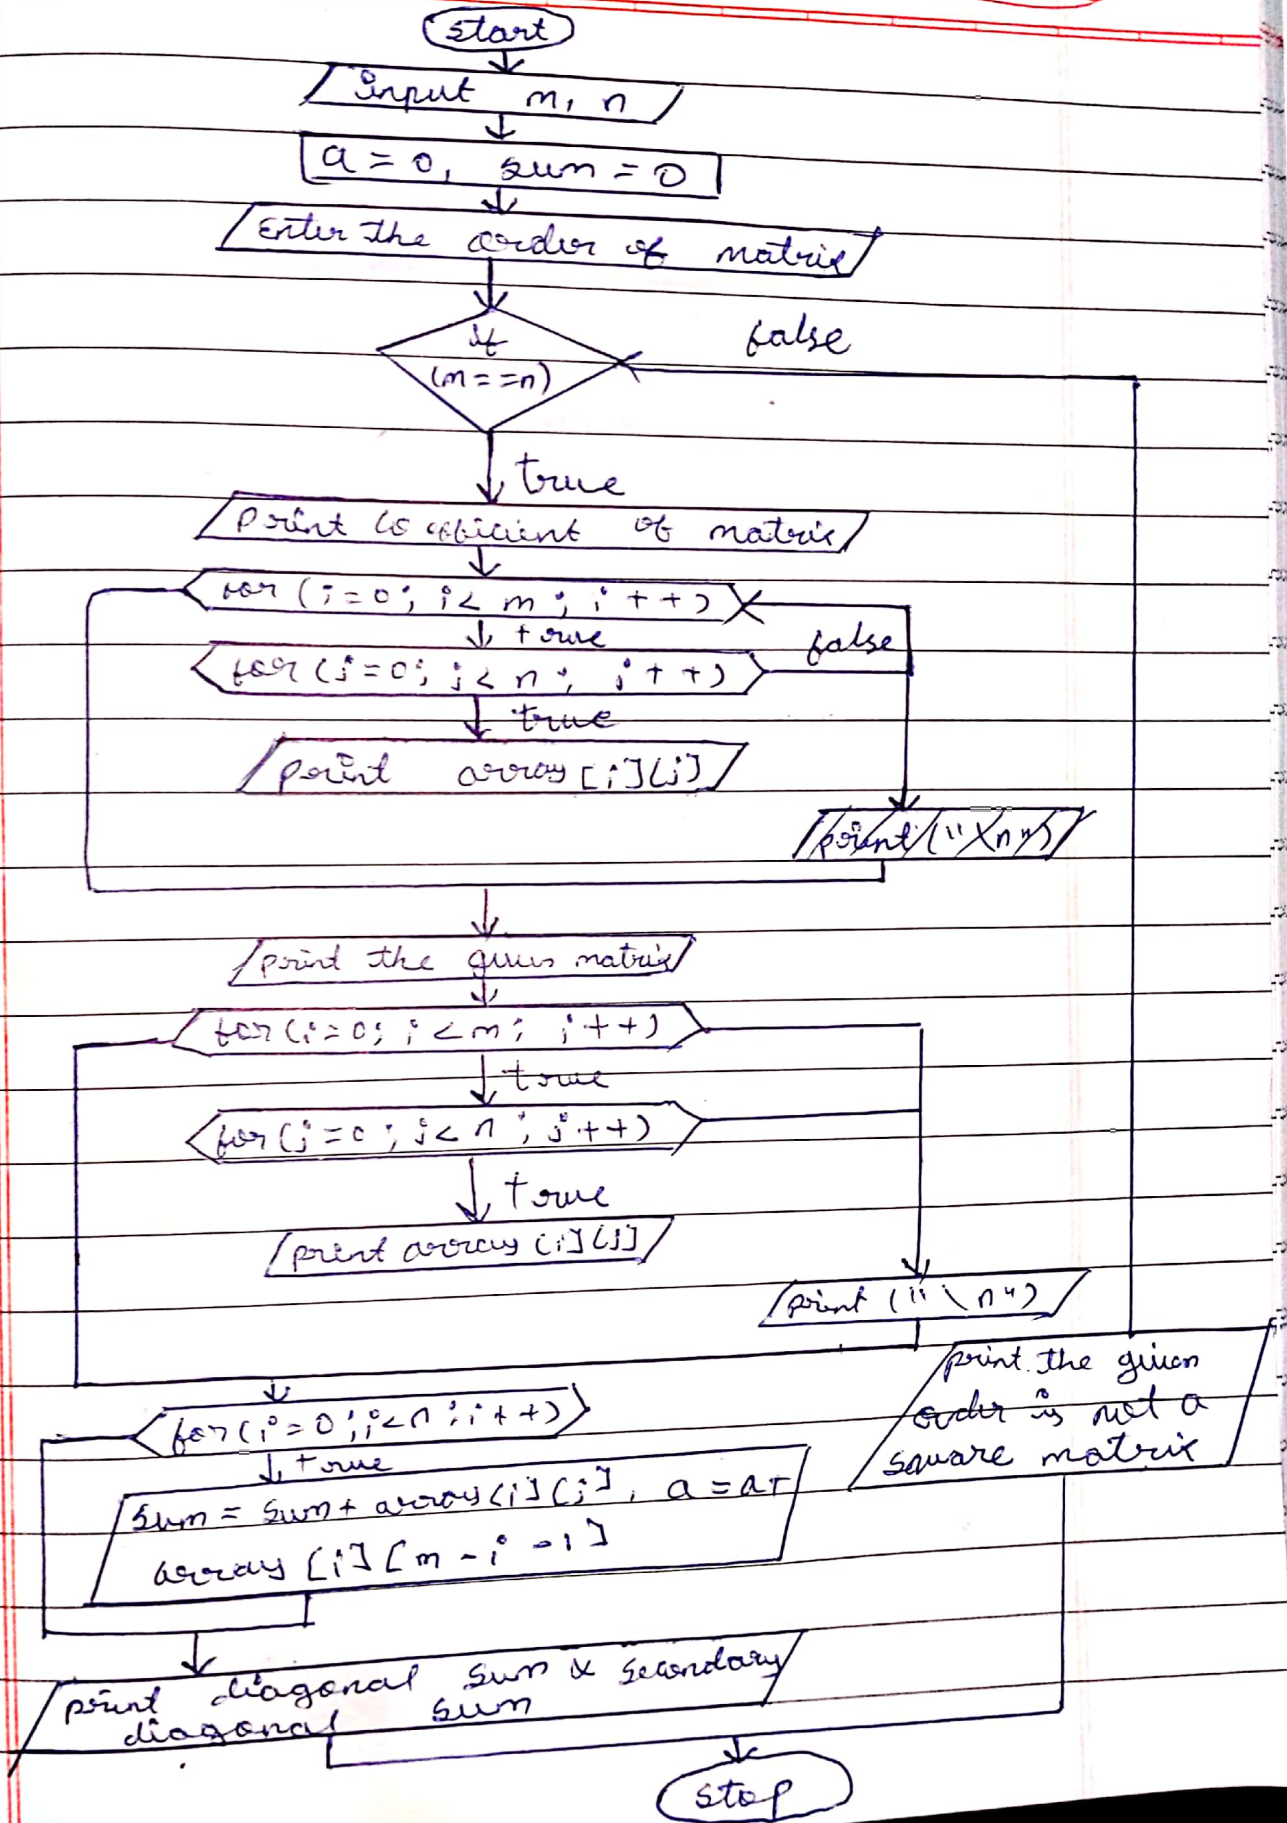 start
input m, n
a = 0, sum = 0
Enter the order of matrix
if
false
(m==n)
true
print coefficient of matrix
for (i=0; i< m; i++)
true
false
for (j=0; j< n; j++)
true
print array[i][j]
print("\n")
print the given matrix
for(i=0; i<m; i++)
true
for(j=0; j<n; j++)
true
print array[i][j]
print ("\n")
print the given
order is not a
square matrix
for(i=0; i<n; i++)
true
sum = sum + array[i][j], a = a+
array [i][m-i-1]
print diagonal sum & secondary
diagonal sum
stop